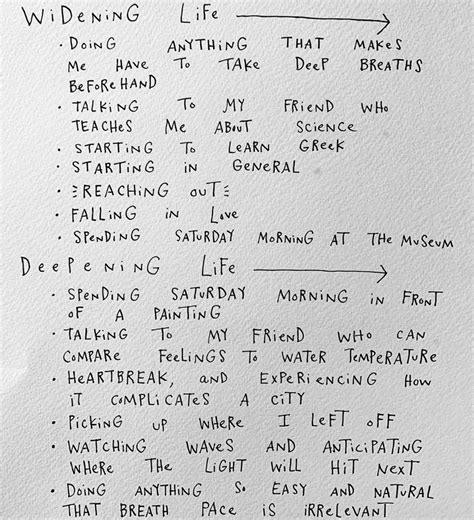 WiDeNiNG LiFe →
• DoiNG ANYTHiNG THAT MAKeS
Me HAVe To TAKe DeeP BReATHS
BeFoReHAND
• TALKiNG To MY FRieND WHo
TeACHeS Me ABouT SCieNCe
• STARTiNG To LeARN GReeK
• STARTiNG iN GeNeRAL
• ReACHiNG ouT
• FALLiNG iN LoVe
• SPeNDiNG SATuRDAY MoRNiNG AT THe MuSeuM
DeePeNiNG LiFe →
• SPeNDiNG SATuRDAY MoRNiNG iN FRoNT
oF A PAiNTiNG
• TALKiNG To MY FRieND WHo CAN
CoMPARe FeeLiNGS To WATeR TeMPeRATuRe
• HeARTBReAK, AND eXPeRieNCiNG HoW
iT CoMPLiCATeS A CiTY
• PiCKiNG uP WHeRe I LeFT oFF
• WATCHiNG WAVeS AND ANTiCiPATiNG
WHeRe THe LiGHT WiLL HiT NeXT
• DoiNG ANYTHiNG So eASY AND NATuRAL
THAT BReATH PACe iS iRReLeVANT